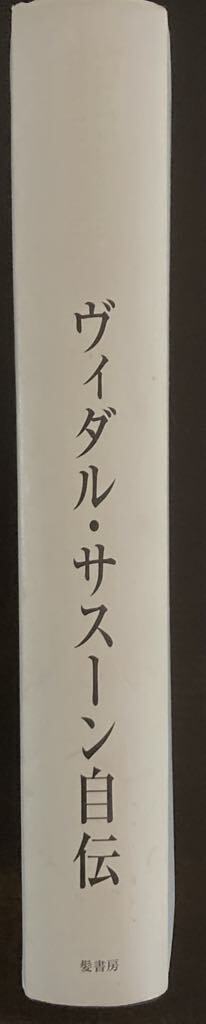 ヴィダル・サスーン自伝
髪書房